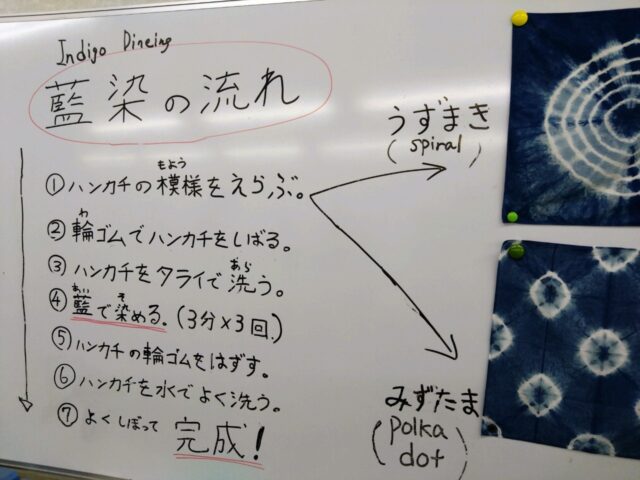 Indigo Dineing
藍染の流れ
①ハンカチの模様をえらぶ。
もよう
②輪ゴムでハンカチをしばる。
わ
③ハンカチをタライで洗う。
あら
④藍で染める.(3分×3回.)
あい そ
⑤ハンカチの輪ゴムをはずす。
⑥ハンカチを水でよく洗う。
⑦よくしぼって 完成!
うずまき
(spiral)
みずたま
(polka
dot)